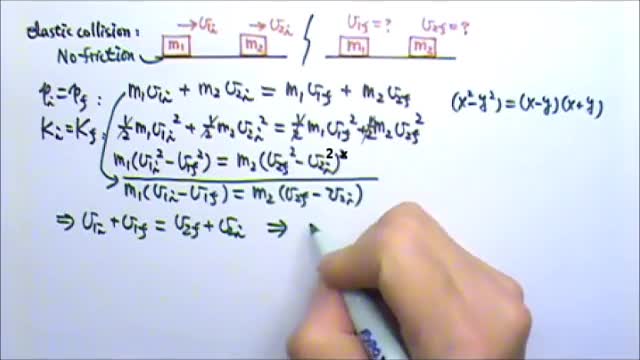 elastic collision: → v₁ᵢ → v₂ᵢ v₁f = ? v₂f = ?
No friction m₁ m₂ m₁ m₂
pᵢ = pf : m₁v₁ᵢ + m₂v₂ᵢ = m₁v₁f + m₂v₂f (x² - y²) = (x - y)(x + y)
Kᵢ = Kf : ½m₁v₁ᵢ² + ½m₂v₂ᵢ² = ½m₁v₁f² + ½m₂v₂f²
m₁(v₁ᵢ² - v₁f²) = m₂(v₂f² - v₂ᵢ²)
m₁(v₁ᵢ - v₁f) = m₂(v₂f - v₂ᵢ)
⇒ v₁ᵢ + v₁f = v₂f + v₂ᵢ ⇒